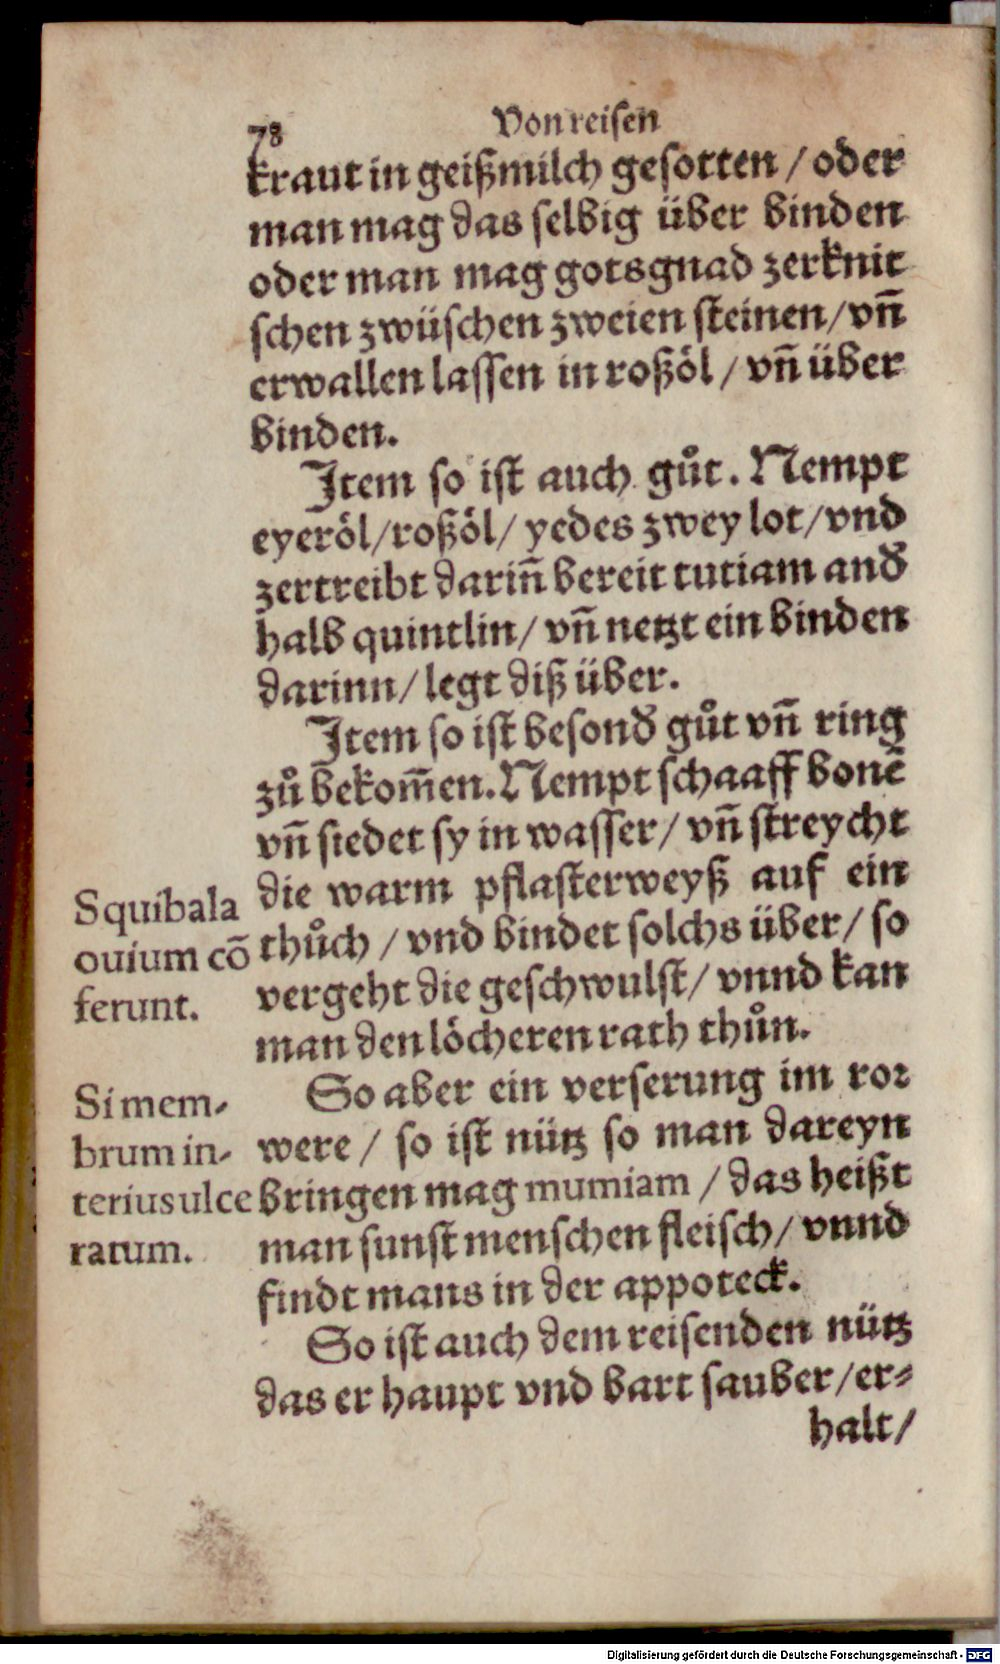 78
Von reisen
kraut in geißmilch gesotten / oder
man mag das selbig über binden
oder man mag gotsgnad zerknit
schen zwüschen zweien steinen / vñ
erwallen lassen in roßöl / vñ über
binden.
Item so ist auch gůt. Nempt
eyeröl / roßöl / yedes zwey lot / vnd
zertreibt dariñ bereit tutiam and̄
halb quintlin / vñ netzt ein binden
darinn / legt diß über.
Item so ist besond̄ gůt vñ ring
zů bekom̄en. Nempt schaaff bonē
vñ siedet sy in wasser / vñ streycht
die warm pflasterweyß auf ein
thůch / vnd bindet solchs über / so
vergeht die geschwulst / vnnd kan
man den löcheren rath thůn.
Squibala
ouium cō
ferunt.
So aber ein verserung im ror
were / so ist nütz so man dareyn
bringen mag mumiam / das heißt
man sunst menschen fleisch / vnnd
findt mans in der appoteck.
Si mem-
brum in-
terius ulce
ratum.
So ist auch dem reisenden nütz
das er haupt vnd bart sauber / er-
halt /
Digitalisierung gefördert durch die Deutsche Forschungsgemeinschaft - DFG